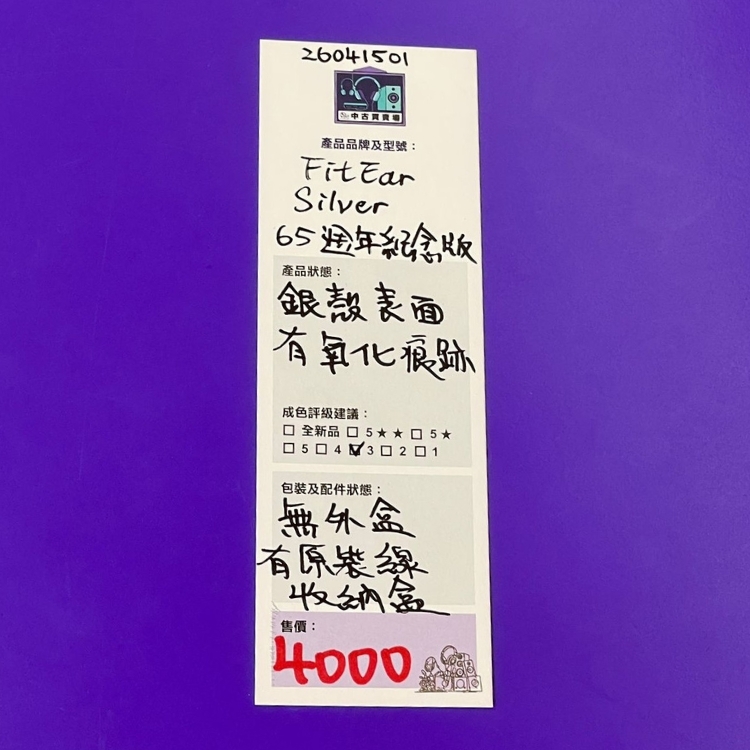 26041501
中古買賣場
產品品牌及型號：
FitEar
Silver
65週年紀念版
產品狀態：
銀殼表面
有氧化痕跡
成色評級建議：
□ 全新品 □ 5★★ □ 5★
□ 5 □ 4 ☑ 3 □ 2 □ 1
包裝及配件狀態：
無外盒
有原裝線
收納盒
售價：
4000